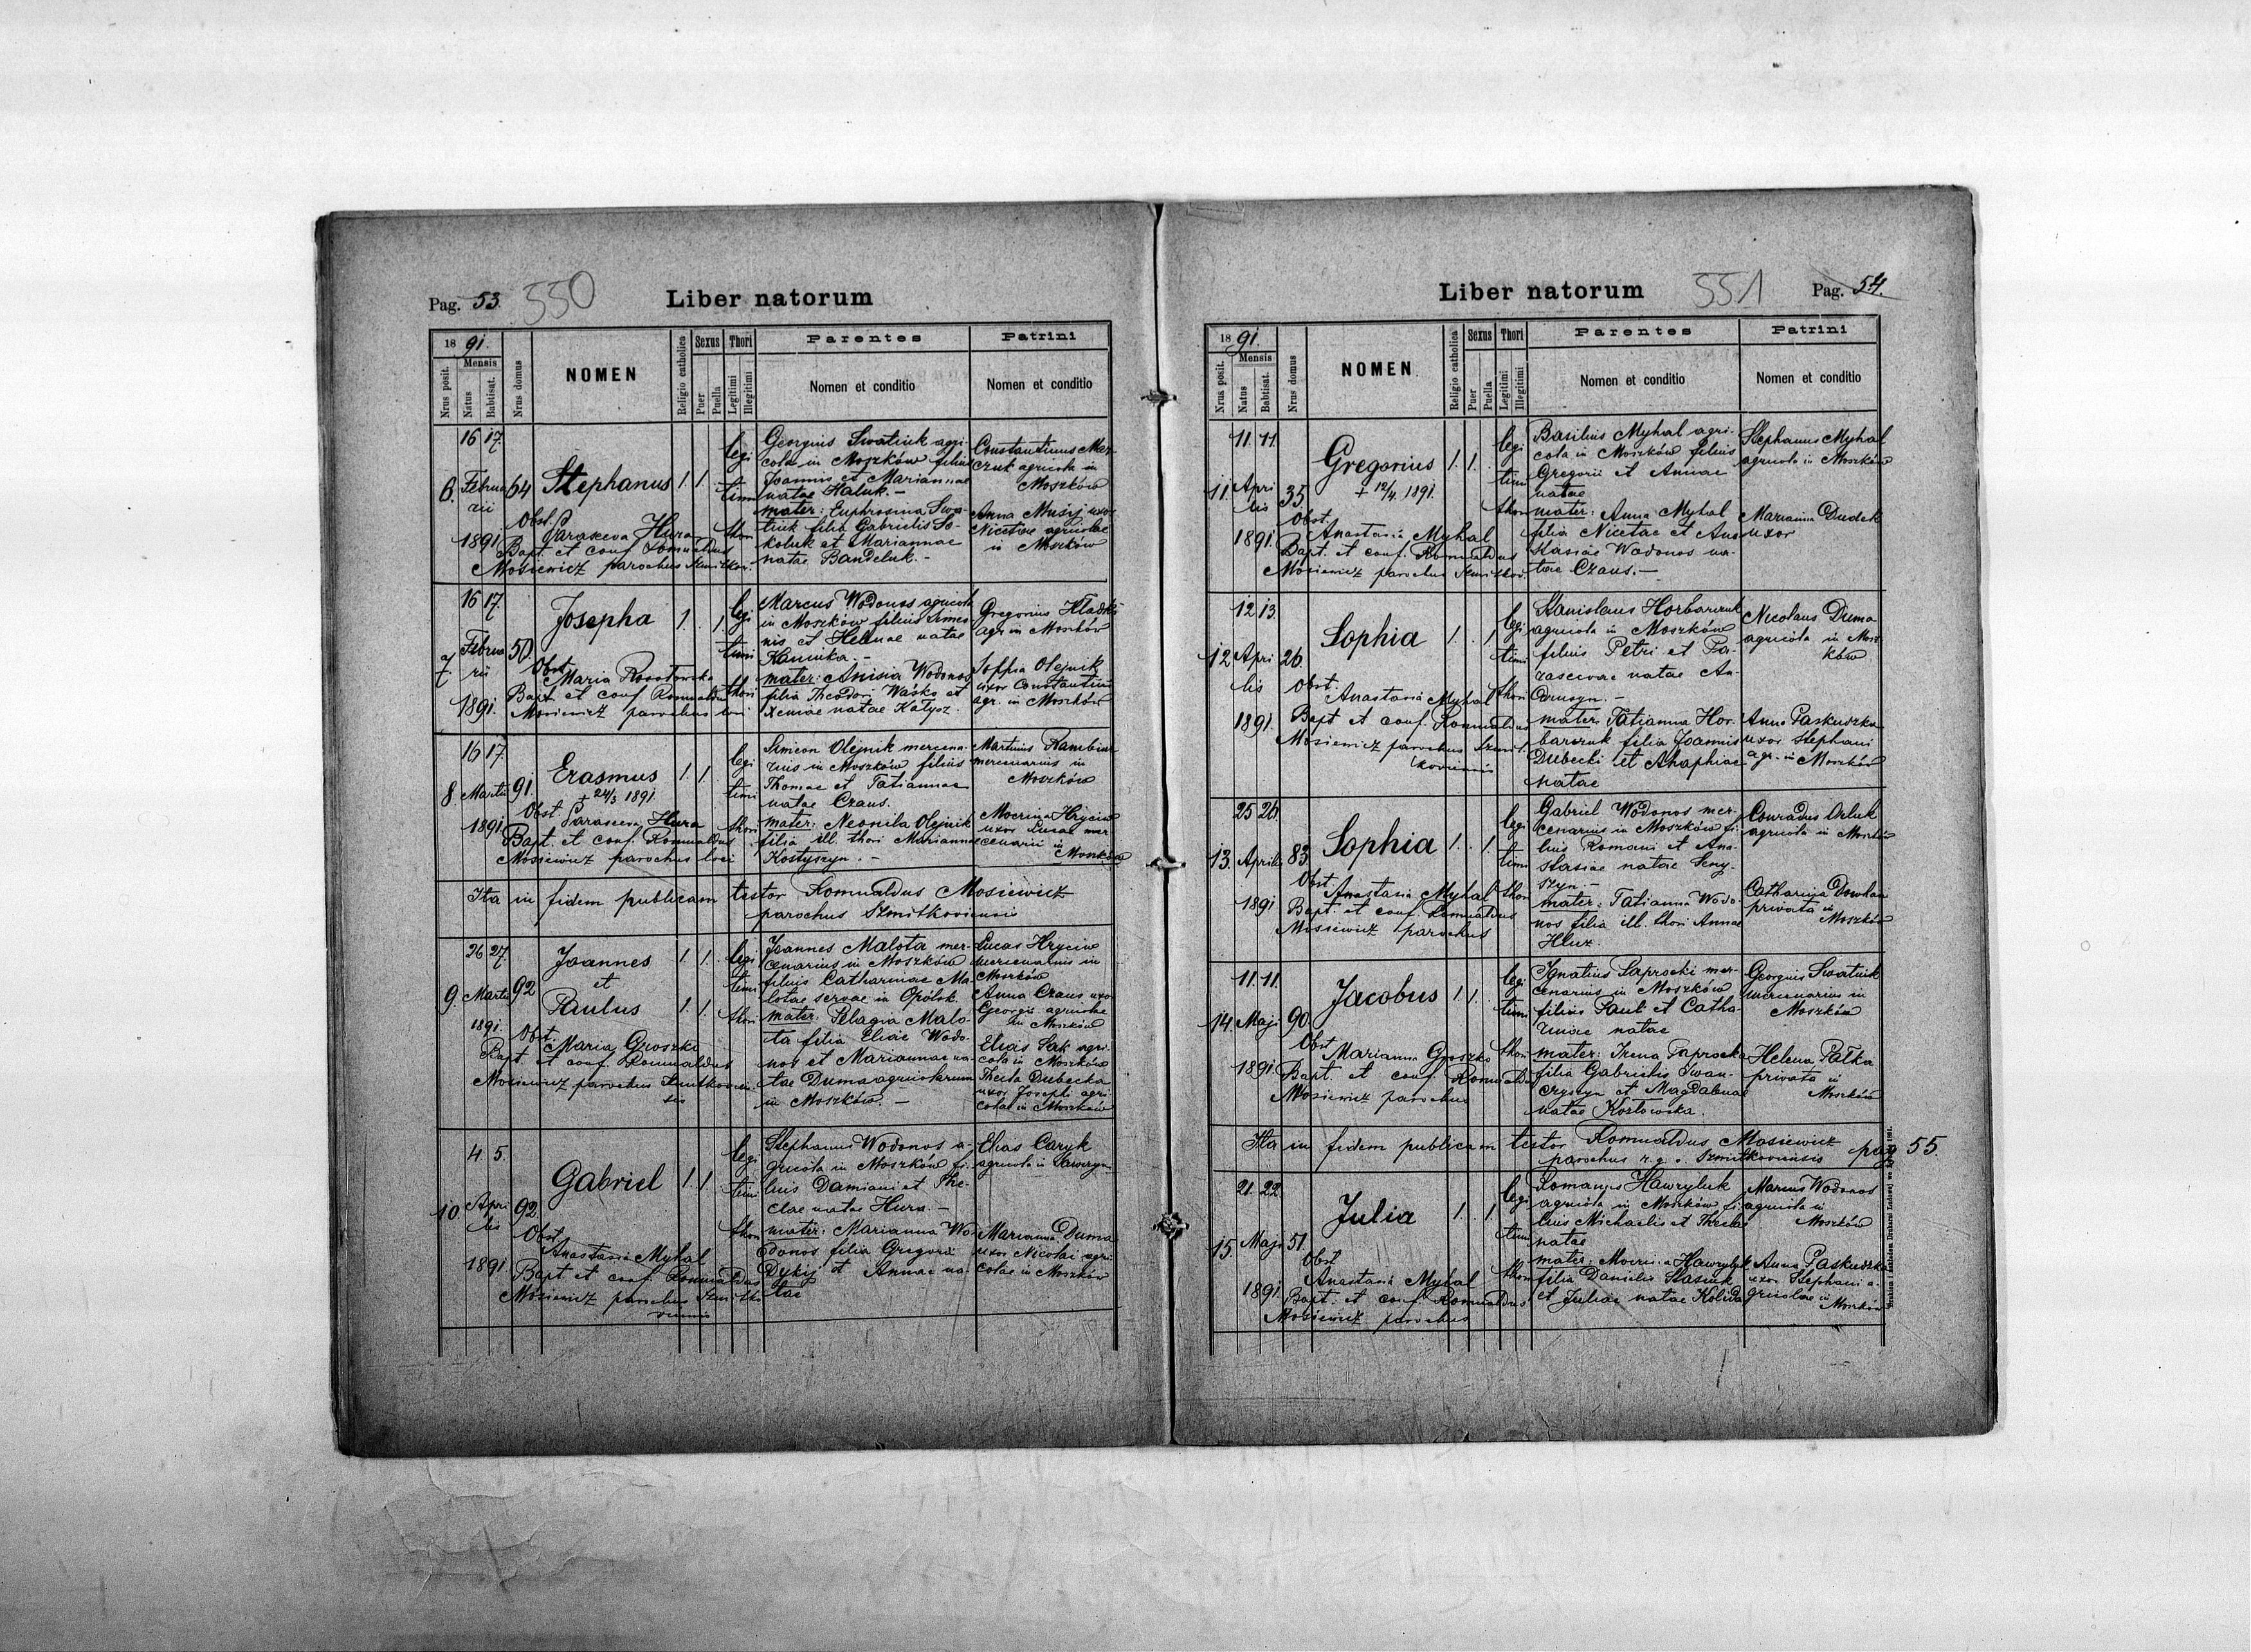 Pag. 53. 550 Liber natorum
1891.
Nrus posit.
Mensis
Natus
Babtisat.
Nrus domus
NOMEN
Religio catholica
Sexus
Puer
Puella
Thori
Legitimi
Illegitimi
Parentes
Nomen et conditio
Patrini
Nomen et conditio
6.
16 17.
Februa
rii
1891.
64
Stephanus
1. 1.
Obst.
Parasceva Hura
Bapt. et conf. Romualdus
Mosiewicz parochus
legi
timi
thori
Georgius Swatiuk agri-
cola in Moszków filius
Joannis et Mariannae
natae Haluk.-
mater: Euphrosina Swa-
tiuk filia Gabrielis So-
koluk et Mariannae
natae Bandeluk.-
Constantinus Mar-
czuk agricola in
Moszków
Anna Musij uxor
Nicetae agricolae
in Moszków
7.
16 17.
Februa
rii
1891.
50.
Josepha
1. 1
Obst.
Maria
Bapt. et conf. Romualdus
Mosiewicz parochus loci
legi
timi
thori
Marcus Wodonos agricola
in Moszków filius Simeo
nis et Helenae natae
Kaminka.-
mater: Anisia Wodonos
filia Theodori Waśko et
Xeniae natae Kałysz.
Gregorius Hladki
agr. in Moszków
Soffia Olejnik
uxor Constantini
agr. in Moszków
8.
16 17.
Martii
1891.
91.
Erasmus
+ 24/3 1891.
1. 1.
Obst. Parasceva Hura
Bapt. et conf. Romualdus
Mosiewicz parochus loci
legi
timi
thori
Simeon Olejnik mercena-
rius in Moszków filius
Thomae et Tatiannae
natae Czaus.
mater: Neonila Olejnik
filia ill. thori Mariannae
Kostyszyn.-
Martinus
mercenarius in
Moszków
Mocrina Hryciw
uxor Lucae mer
cenarii in
Moszków
Ita in fidem publicam testor Romualdus Mosiewicz
parochus Szmitkoviensis
9.
26 27.
Martii
1891.
92
Joannes
et
Paulus
1. 1.
1. 1.
Obst.
Maria Groszko
Bapt. et conf. Romualdus
Mosiewicz parochus Szmitkovien-
sis
legi
timi
thori
Joannes Malota mer-
cenarius in Moszków
filius Catharinae Ma-
lotae servae in Opólsk.
mater: Pelagia Malo-
ta filia Eliae Wodo-
nos et Mariannae na-
tae Duma agricolarum
in Moszków.-
Lucas Hryciw
mercenarius in
Moszków
Anna Czaus uxor
Georgii agricolae
in Moszków
Elias Sak agri-
cola in Moszków
Thecla Dubecka
uxor Josephi agri-
colae in Moszków
10.
4. 5.
Apri
lis
1891.
92.
Gabriel
1. 1.
Obst.
Anastasia Myhal
Bapt. et conf. Romualdus
Mosiewicz parochus Szmitko
viensis
legi
timi
thori
Stephanus Wodonos a-
gricola in Moszków fi-
lius Damiani et The-
clae natae Hura.-
mater: Marianna Wo-
donos filia Gregorii
Dykij et Annae na-
tae
Elias Caryk
agricola in
Marianna Duma
uxor Nicolai agri
colae in Moszków
Liber natorum 551 Pag. 54.
1891.
Nrus posit.
Mensis
Natus
Babtisat.
Nrus domus
NOMEN
Religio catholica
Sexus
Puer
Puella
Thori
Legitimi
Illegitimi
Parentes
Nomen et conditio
Patrini
Nomen et conditio
11.
11. 11.
Apri
lis
1891.
35.
Gregorius
+ 12/4. 1891.
1. 1.
Obst.
Anastasia Myhal
Bapt. et conf. Romualdus
Mosiewicz parochus Szmitkov.
legi
timi
thori
Basilius Myhal agri-
cola in Moszków filius
Gregorii et Annae
natae
mater: Anna Myhal
filia Nicetae et Ana
stasiae Wodonos na-
tae Czaus.-
Stephanus Myhal
agricola in Moszków
Marianna Dudek
uxor
12.
12. 13.
Apri
lis
1891.
26.
Sophia
1. 1
Obst.
Anastasia Myhal
Bapt. et conf. Romualdus
Mosiewicz parochus Szmit-
koviensis
legi
timi
thori
Stanislaus Horbarczuk
agricola in Moszków
filius Petri et Pa-
rascevae natae An-
mater: Tatianna Hor-
barczuk filia Joannis
Dubecki et Ahaphiae
natae
Nicolaus Duma
agricola in Mosz
ków
Anna Paskudzka
uxor Stephani
agr. in Moszków
13.
25 26.
Aprilis
1891
83.
Sophia
1. 1
Obst.
Anastasia Myhal
Bapt. et conf. Romualdus
Mosiewicz parochus
legi
timi
thori
Gabriel Wodonos mer-
cenarius in Moszków fi-
lius Romani et Ana-
stasiae natae Seny-
szyn.-
mater: Tatianna Wodo-
nos filia ill. thori Annae
Hluz.
Conradus Orluk
agricola in Moszków
Catharina Dowhan
privata in
Moszków
14.
11. 11.
Maji
1891.
90.
Jacobus
1. 1.
Obst
Marianna Groszko
Bapt. et conf. Romualdus
Mosiewicz parochus
legi
timi
thori
Ignatius Saprocki mer-
cenarius in Moszków
filius Pauli et Catha-
rinae natae
mater: Irena Saprocka
filia Gabrielis Iwan-
czyszyn et Magdalenae
natae Kozłowska.
Georgius Swatiuk
mercenarius in
Moszków
Helena Pałka
privata in
Moszków
Ita in fidem publicam testor Romualdus Mosiewicz
parochus r. g. Szmitkoviensis pag 55.
15.
21. 22.
Maji
1891.
51.
Julia
1. 1.
Obst
Anastasia Myhal
Bapt. et conf. Romualdus
Mosiewicz parochus
legi
timi
thori
Romanus Hawryluk
agricola in Moszków fi-
lius Michaelis et Theclae
natae
mater: Mocrina Hawryluk
filia Danielis Stasiuk
et Juliae natae Kolida
Marcus Wodonos
agricola in
Moszków
Anna Paskudzka
uxor Stephani a-
gricolae in
Moszków